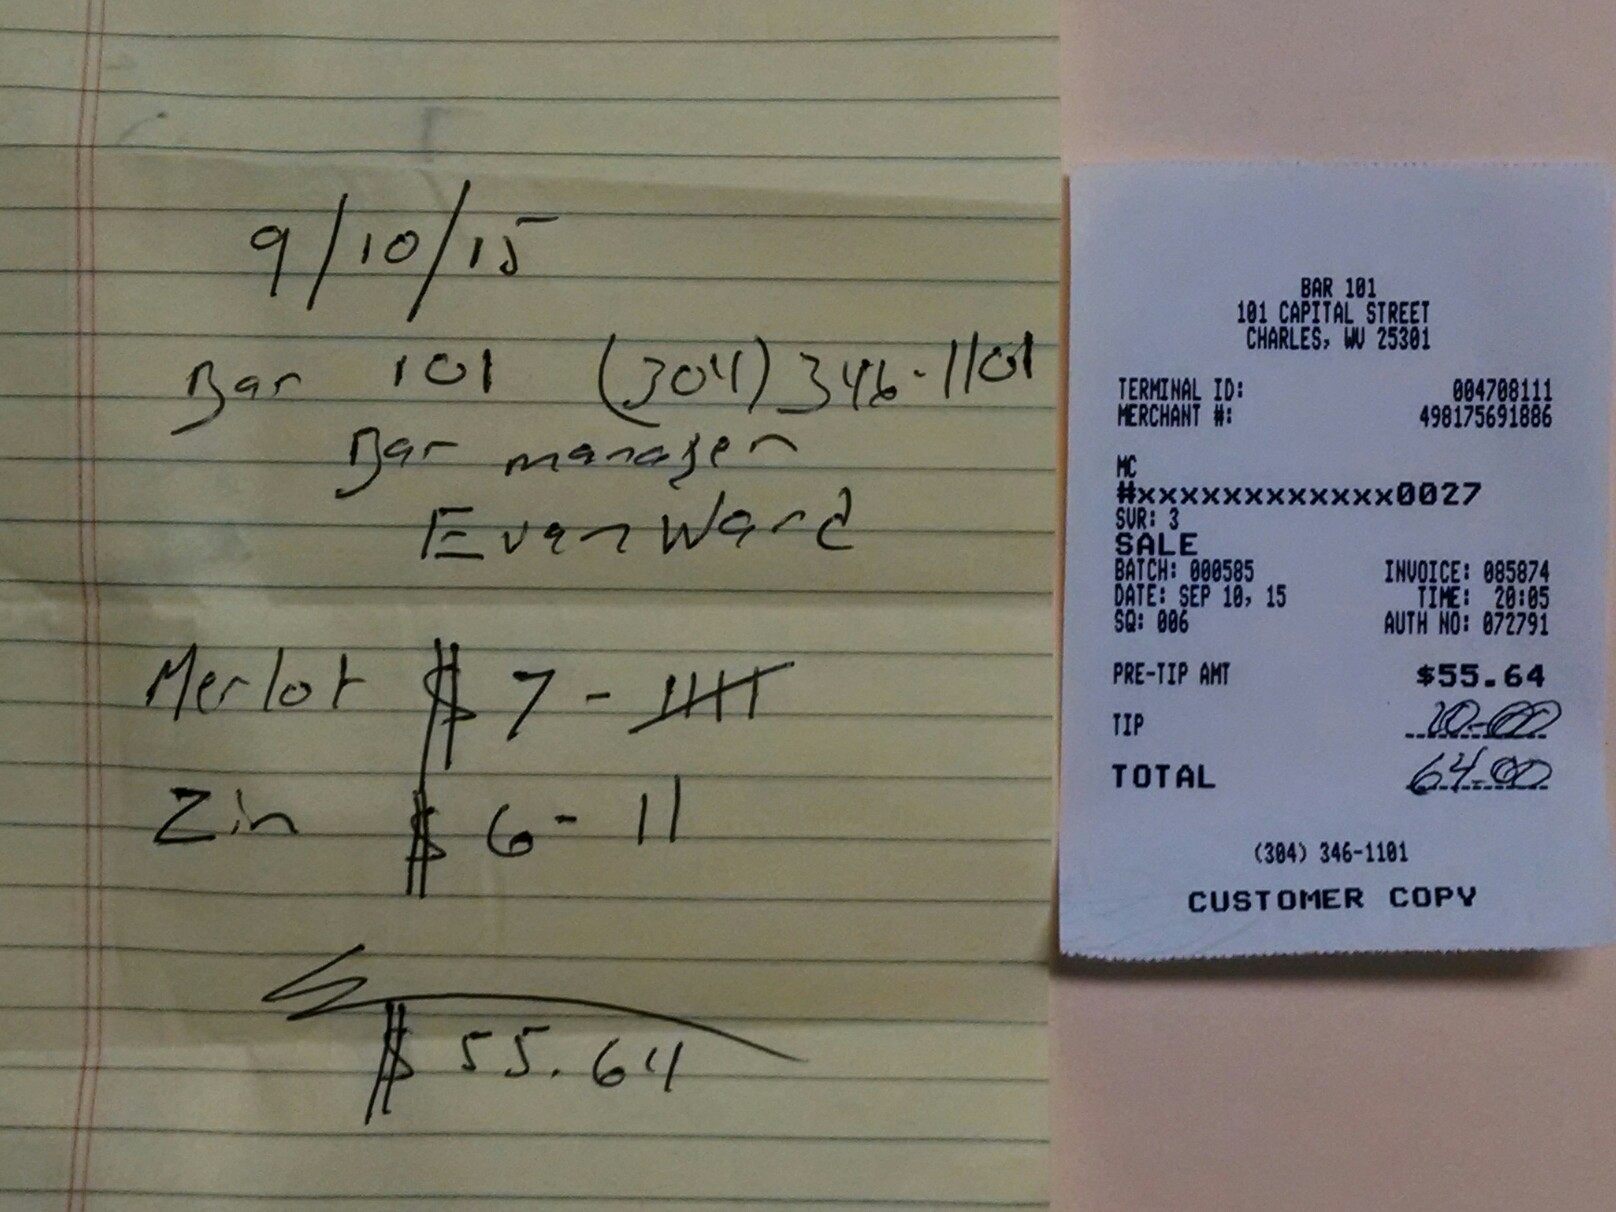 9/10/15
Bar 101 (304) 346-1101
Bar manager
Evan Ward
Merlot $ 7 - 卌
Zin $ 6 - 11
$ 55.64
BAR 101
101 CAPITAL STREET
CHARLES, WV 25301
TERMINAL ID: 004708111
MERCHANT #: 498175691886
MC
#xxxxxxxxxxxx0027
SVR: 3
SALE
BATCH: 000585 INVOICE: 085874
DATE: SEP 10, 15 TIME: 20:05
SQ: 006 AUTH NO: 072791
PRE-TIP AMT $55.64
TIP 10.00
TOTAL 64.00
(304) 346-1101
CUSTOMER COPY